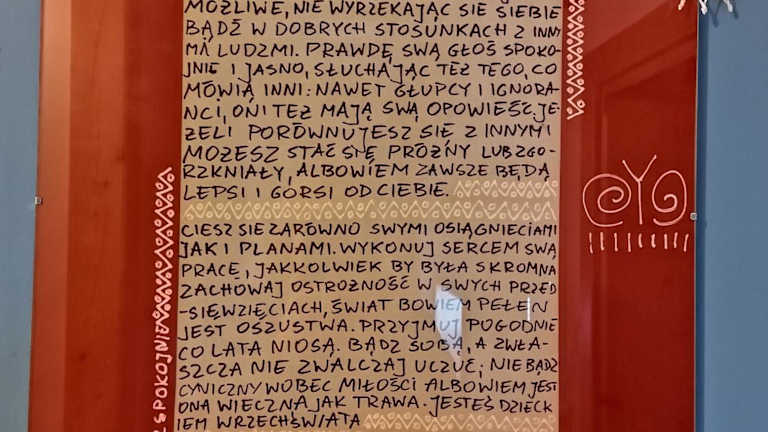 MOŻLIWE, NIE WYRZEKAJĄC SIĘ SIEBIE
BĄDŹ W DOBRYCH STOSUNKACH Z INNY
MA LUDŹMI. PRAWDĘ SWĄ GŁOŚ SPOKO-
JNIE I JASNO, SŁUCHAJĄC TEŻ TEGO, CO
MÓWIĄ INNI: NAWET GŁUPCY I IGNORA-
NCI, ONI TEŻ MAJĄ SWĄ OPOWIEŚĆ. JE-
ŻELI PORÓWNUJESZ SIĘ Z INNYMI
MOŻESZ STAĆ SIĘ PRÓŻNY LUB ZGO-
RZKNIAŁY, ALBOWIEM ZAWSZE BĘDĄ
LEPSI I GORSI OD CIEBIE.
CIESZ SIĘ ZARÓWNO SWYMI OSIĄGNIĘCIAMI
JAK I PLANAMI. WYKONUJ SERCEM SWĄ
PRACĘ, JAKKOLWIEK BY BYŁA SKROMNA
ZACHOWAJ OSTROŻNOŚĆ W SWYCH PRZED
-SIĘWZIĘCIACH, ŚWIAT BOWIEM PEŁEN
JEST OSZUSTWA. PRZYJMUJ POGODNIE
CO LATA NIOSĄ. BĄDŹ SOBĄ, A ZWŁA-
SZCZA NIE ZWALCZAJ UCZUĆ; NIE BĄDŹ
CYNICZNY WOBEC MIŁOŚCI ALBOWIEM JEST
ONA WIECZNA JAK TRAWA. JESTEŚ DZIECK
IEM WRZECHŚWIATA
SPOKOJNIE